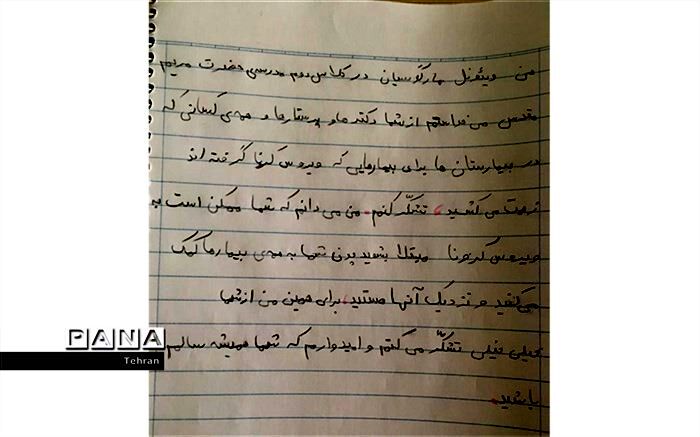 من ویتغرنل مارگوسیان در کلاس دوم مدرسی حضرت مریم
مقدس می خواستم از شما دکترها و پرستارها و همه ی کسانی که
در بیمارستان ها برای بیمارهایی که ویروس کرنا گرفته اند
زحمت می کشید، تشکّر کنم. من می دانم که شما ممکن است به
ویروس کرونا مبتلا بشید چون شما به همه ی بیمارها کمک
می کنید و نزدیک آنها هستید، برای همین من از شما
خیلی خیلی تشکّر می کنم و امیدوارم که شما همیشه سالم
باشید.
PANA
Tehran